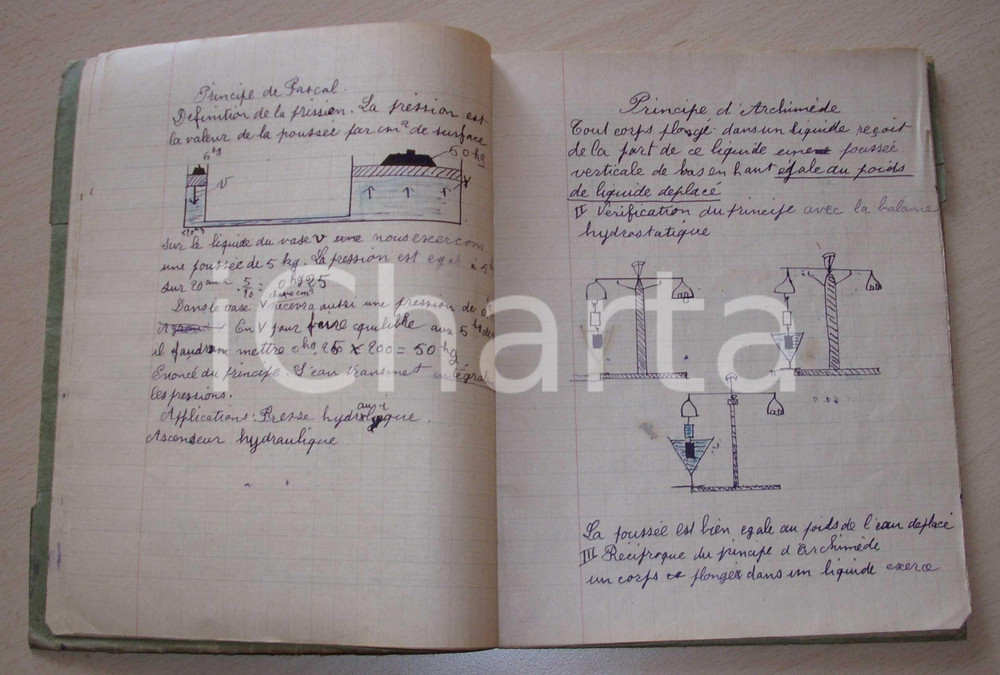 Principe de Pascal.
Definition de la pression. La pression est
la valeur de la poussée par cm² de surface
5 kg
50 kg
v
V
sur le liquide du vase v une nous exercon
une poussée de 5 kg. La pression est egal a 5 k
sur 20 cm² 5/20 = 0 kg 25
chaque cm²
Dans le vase V recevra aussi une pression de 0
En V pour faire equilibre aux 5 kg de
il faudra mettre 0 kg. 25 x 200 = 50 kg
Enoncé du principe. L'eau transmet intégral
les pressions.
Applications: Presse hydraulique.
Ascenseur hydraulique
Principe d'Archimède
Tout corps plongé dans un liquide reçoit
de la part de ce liquide une poussée
verticale de bas en haut égale au poids
de liquide deplacé
II Verification du principe avec la balance
hydrostatique
La poussée est bien egale au poids de l'eau deplacé
III Réciproque du principe d'Archimède
un corps plongé dans un liquide exerce
iCharta